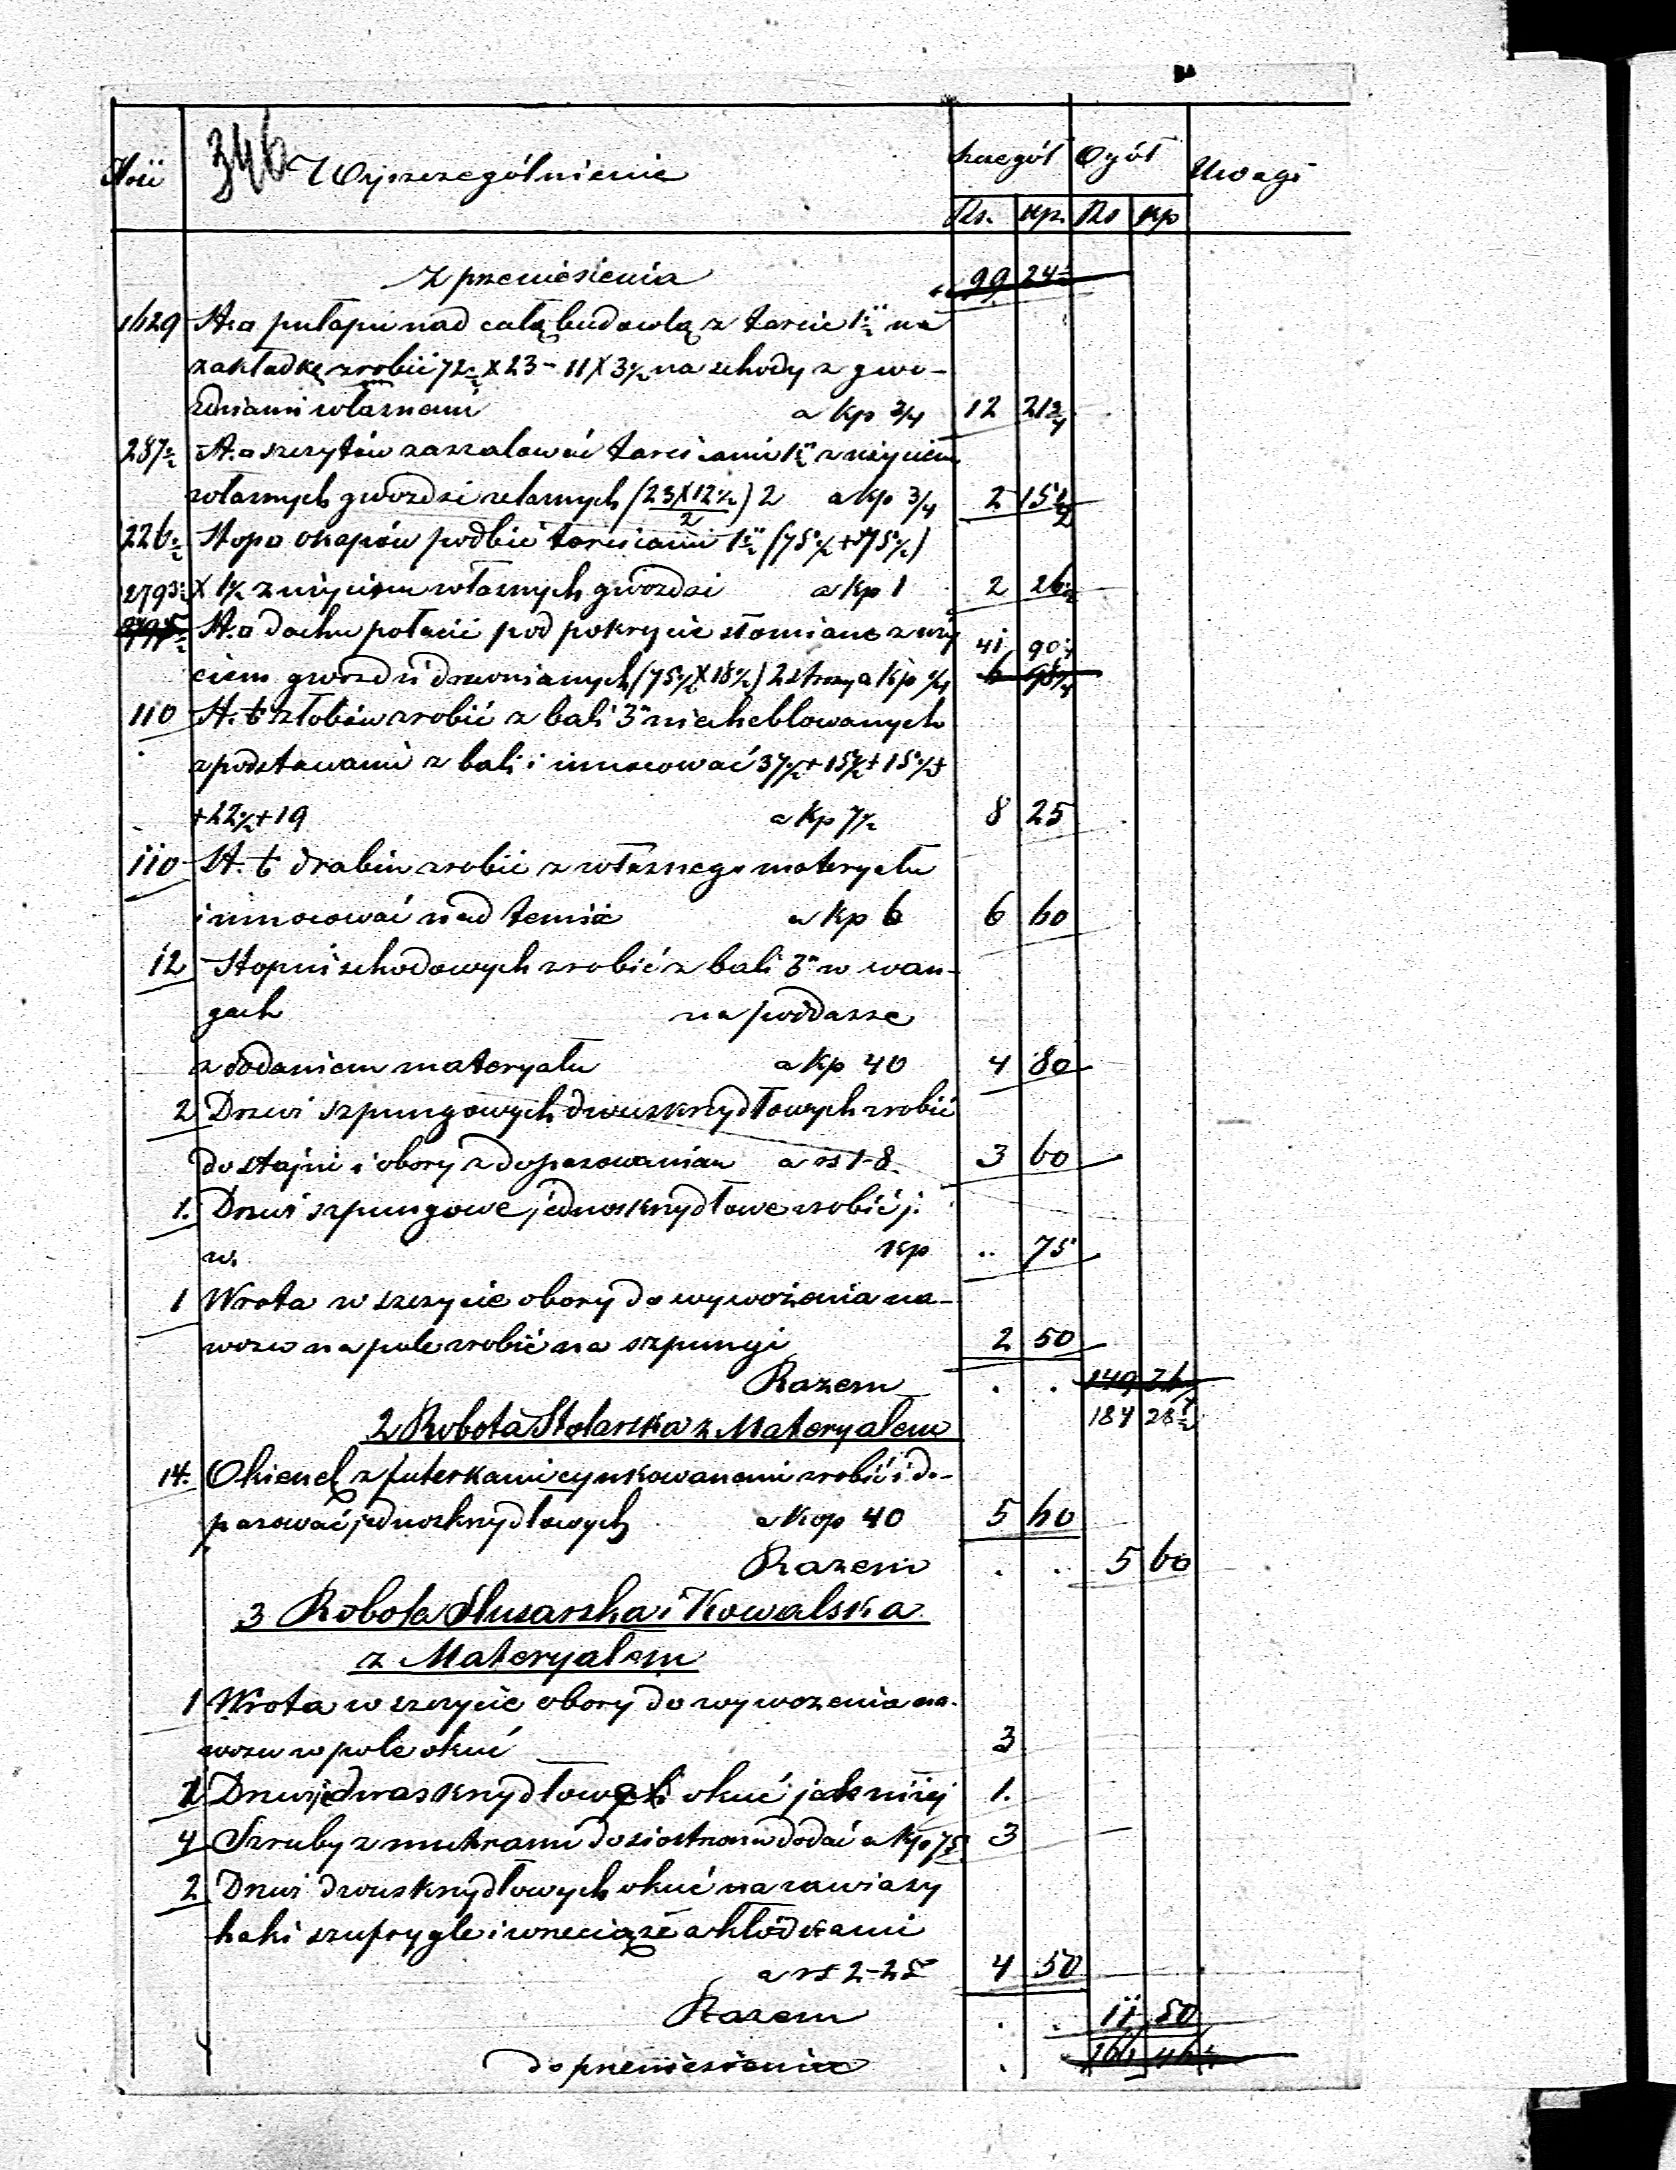 346
Ilość Wyszczególnienie Szczegół Ogół Uwagi
Rs. kp. Rs kp
Z przeniesienia 99 24
1629 St. □ pułapu nad całą budowlą z tarcic 1½" na
zakładkę zrobić 72½ X 23 - 11 X 3½ na schody z gwo-
zdziami własnemi a kp ¾ 12 21¾
287½ St. □ szczytów zaszalować tarcicami 1½" z użyciem
własnych gwozdzi żelaznych (23 X 12½ / 2) 2 a kp ¾ 2 15½
226½ Stopo okapów podbić tarcicami 1½" (75½ + 75½)
X 1½ z użyciem własnych gwozdzi a kp 1 2 26½
2793½ St. □ dachu połacić pod pokrycie słomiane z uży
ciem gwozdzi drewnianych (75½ X 18½) 2 a kp 41 90¼
6 98¼
110 St. b żłobów zrobić z bali 3" nieheblowanych
z podstawami z bali i umocować 37½ + 15½ + 15½ +
+ 22½ + 19 a kp 7½ 8 25
110 St. b drabin zrobić z własnego materyału
i umocować nad temiż a kp 6 6 60
12 Stopni schodowych zrobić z bali 3" w wan-
gach na poddasze
z dodaniem materyału a kp 40 4 80
2 Drzwi szpungowych dwuskrzydłowych zrobić
do stajni i obory z dopasowaniem a rs 1-8. 3 60
1. Drzwi szpungowe jednoskrzydłowe zrobić j.
w. kp .. 75
1 Wrota w szczycie obory do wywożenia na-
wozu na pole zrobić na szpungi 2 50
Razem . . 149 26
184 28½
2 Robota Stolarska z Materyałem
14. Okienek z futerkami cynkowanemi zrobić i do-
pasować jednoskrzydłowych a kop 40 5 60
Razem . . 5 60
3 Robota Ślusarska i Kowalska
z Materyałem
1 Wrota w szczycie obory do wywożenia na-
wozu w pole okuć 3
1 Drzwi okuć jak niżej 1.
4 Szruby z mutrami do siostrzana dodać a kp 75 3
2 Drzwi dwuskrzydłowych okuć na zawiasy
haki szuprygle i wrzeciąże z kłódkami
a rs 2-25 4 50
Razem . . 11 50
do przeniesienia . 166 46